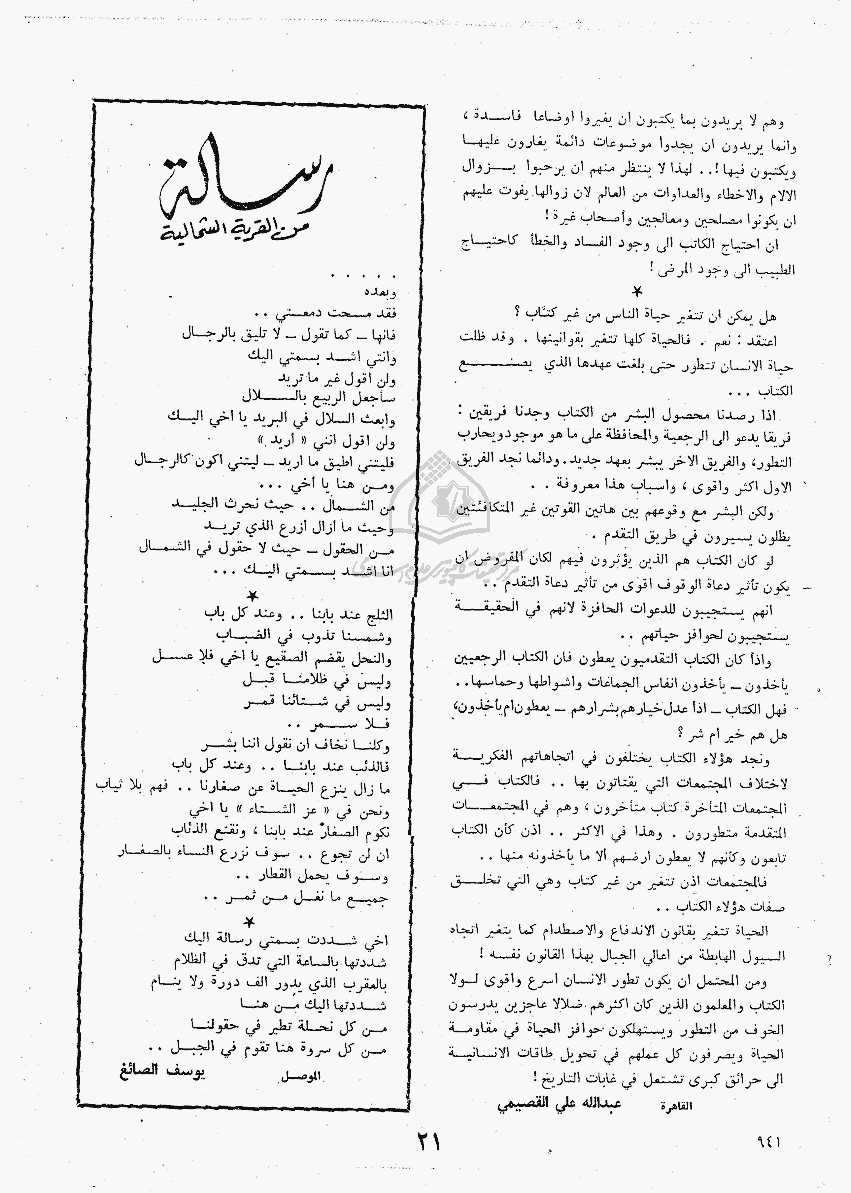 وهم لا يريدون بما يكتبون ان يغيروا اوضاعا فاسدة ،
وانما يريدون ان يجدوا موضوعات دائمة يغارون عليها
ويكتبون فيها !.. لهذا لا ينتظر منهم ان يرحبوا بزوال
الالام والاخطاء والعداوات من العالم لان زوالها يفوت عليهم
ان يكونوا مصلحين ومعالجين وأصحاب غيرة !
ان احتياج الكاتب الى وجود الفساد والخطأ كاحتياج
الطبيب الى وجود المرضى !
★
هل يمكن ان تتغير حياة الناس من غير كتّاب ؟
اعتقد : نعم . فالحياة كلها تتغير بقوانينها . وقد ظلت
حياة الانسان تتطور حتى بلغت عهدها الذي يصنع
الكتاب ...
اذا رصدنا محصول البشر من الكتاب وجدنا فريقين :
فريقا يدعو الى الرجعية والمحافظة على ما هو موجود ويحارب
التطور، والفريق الاخر يبشر بعهد جديد. ودائما نجد الفريق
الاول اكثر واقوى ، واسباب هذا معروفة . .
ولكن البشر مع وقوعهم بين هاتين القوتين غير المتكافئتين
يظلون يسيرون في طريق التقدم .
لو كان الكتاب هم الذين يؤثرون فيهم لكان المفروض ان
يكون تأثير دعاة الوقوف اقوى من تأثير دعاة التقدم ..
انهم يستجيبون للدعوات الحافزة لانهم في الحقيقة
يستجيبون لحوافز حياتهم ..
واذأ كان الكتاب التقدميون يعطون فان الكتاب الرجعيين
يأخذون ــ يأخذون انفاس الجماعات واشواطها وحماسها..
فهل الكتاب ــ اذا عدل خيارهم بشرارهم ــ يعطون ام يأخذون،
هل هم خير ام شر ؟
ونجد هؤلاء الكتاب يختلفون في اتجاهاتهم الفكرية
لاختلاف المجتمعات التي يقتاتون بها .. فالكتاب في
المجتمعات المتأخرة كتاب متأخرون ، وهم في المجتمعات
المتقدمة متطورون . وهذا في الاكثر .. اذن كأن الكتاب
تابعون وكأنهم لا يعطون ارضهم ألا ما يأخذونه منها ..
فالمجتمعات اذن تتغير من غير كتاب وهي التي تخلق
صفات هؤلاء الكتاب ..
الحياة تتغير بقانون الاندفاع والاصطدام كما يتغير اتجاه
السيول الهابطة من اعالي الجبال بهذا القانون نفسه !
ومن المحتمل ان يكون تطور الانسان اسرع واقوى لولا
الكتاب والمعلمون الذين كان اكثرهم ضلالا عاجزين يدرسون
الخوف من التطور ويستهلكون حوافز الحياة في مقاومة
الحياة ويصرفون كل عملهم في تحويل طاقات الانسانية
الى حرائق كبرى تشتعل في غابات التاريخ !
القاهرة عبدالله علي القصيمي
رسالة
من القرية الشمالية
. . . . .
وبعده
فقد مسحت دمعتي ..
فانها ــ كما تقول ــ لا تليق بالرجال
وانني اشد بسمتي اليك
ولن اقول غير ما تريد
سأجعل الربيع بالسلال
وابعث السلال في البريد يا اخي اليك
ولن اقول انني « أريد »
فليتني اطيق ما اريد ــ ليتني اكون كالرجال
ومن هنا يا أخي ...
من الشمال .. حيث نحرث الجليد
وحيث ما ازال أزرع الذي تريد
من الحقول ــ حيث لا حقول في الشمال
انا اشد بسمتي اليك ...
★
الثلج عند بابنا .. وعند كل باب
وشمسنا تذوب في الضباب
والنحل يقضم الصقيع يا اخي فلا عسل
وليس في ظلامنا قبل
وليس في شتائنا قمر
فلا سمر ..
وكلنا نخاف ان نقول اننا بشر
فالذئب عند بابنا .. وعند كل باب
ما زال ينزع الحياة عن صغارنا .. فهم بلا ثياب
ونحن في « عز الشتاء » يا اخي
نكوم الصغار عند بابنا ، ونقنع الذئاب
ان لن تجوع .. سوف نزرع النساء بالصغار
وسوف يحمل القطار ..
جميع ما نغل من ثمر ..
★
اخي شددت بسمتي رسالة اليك
شددتها بالساعة التي تدق في الظلام
بالعقرب الذي يدور الف دورة ولا ينام
شددتها اليك من هنا
من كل نحلة تطير في حقولنا
من كل سروة هنا تقوم في الجبل ..
الموصل يوسف الصائغ
٢١
٩٤١